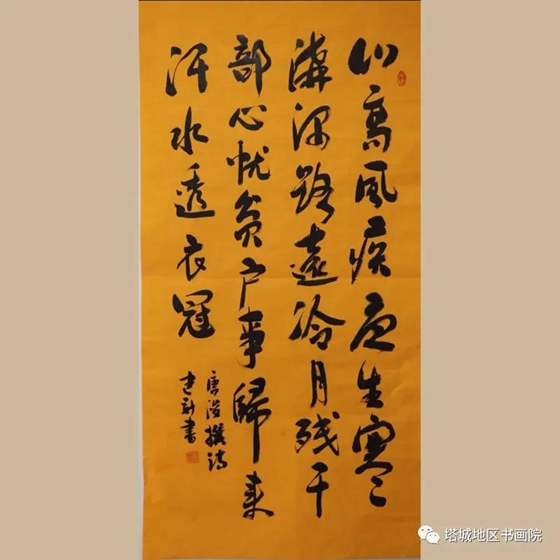 山高风疾夜生寒
溝深路遠冷月残干
部心忧贫户事歸来
汗水透衣冠
唐 撰诗
书
塔城地区书画院